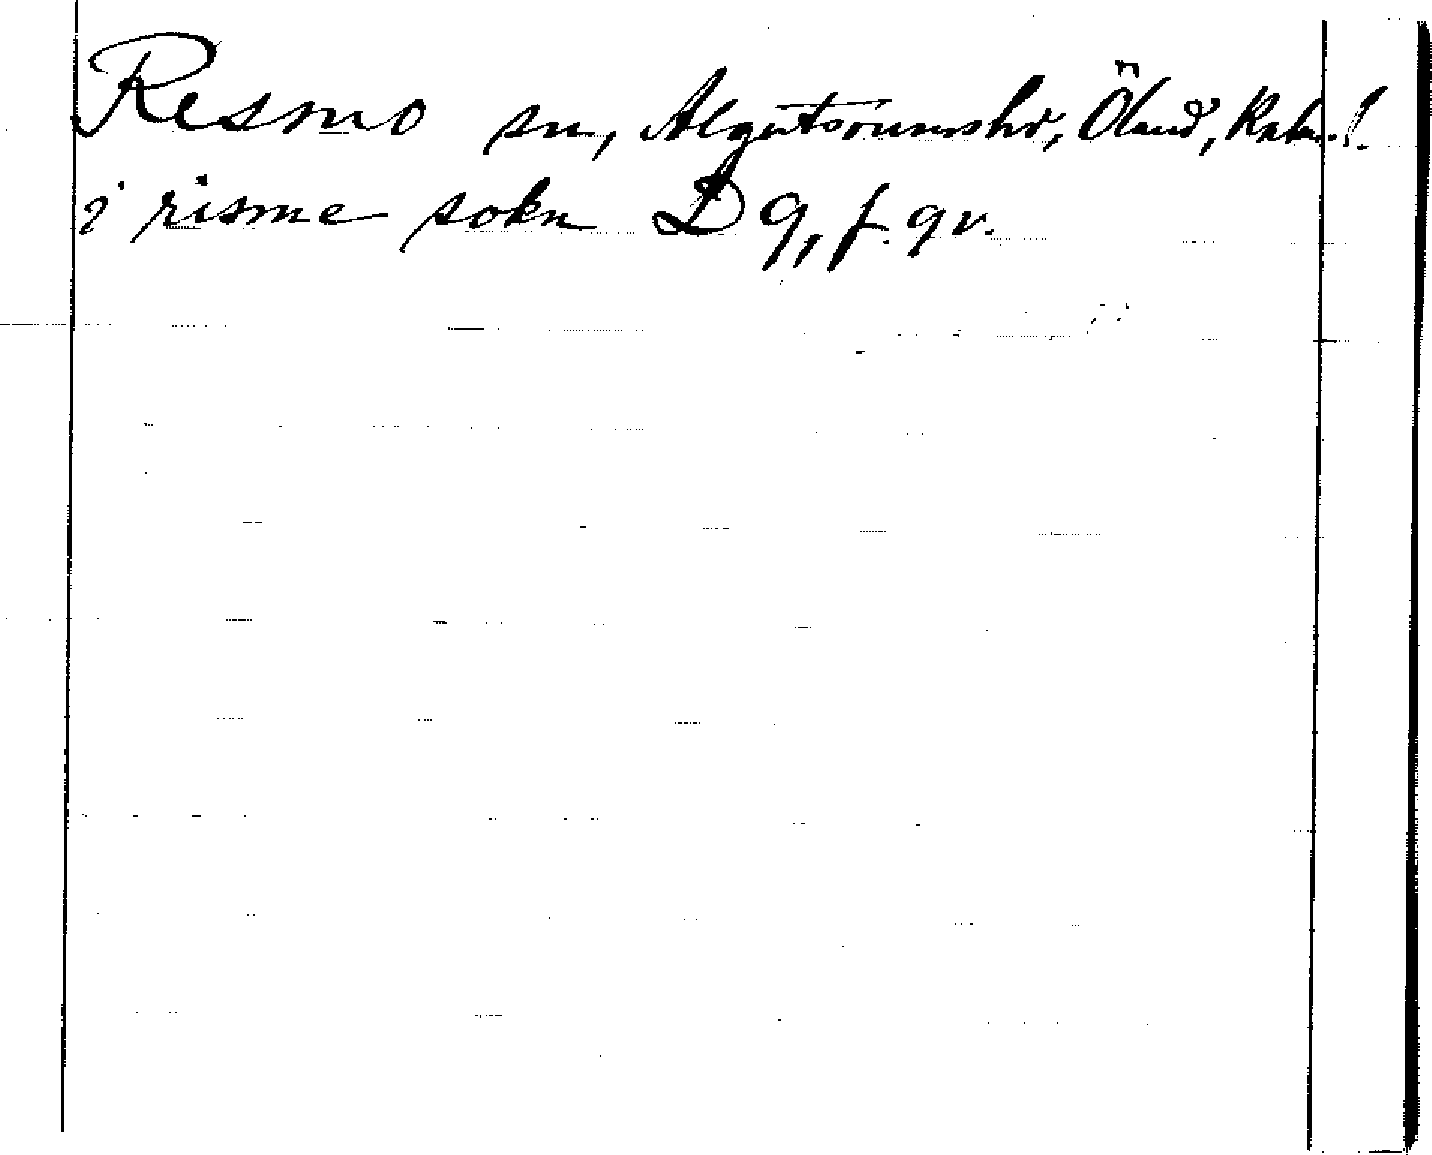 Resmo sn, Algutsrumshd, Öland, Kalm. l.
i risme sokn D 9, f. 9 v.